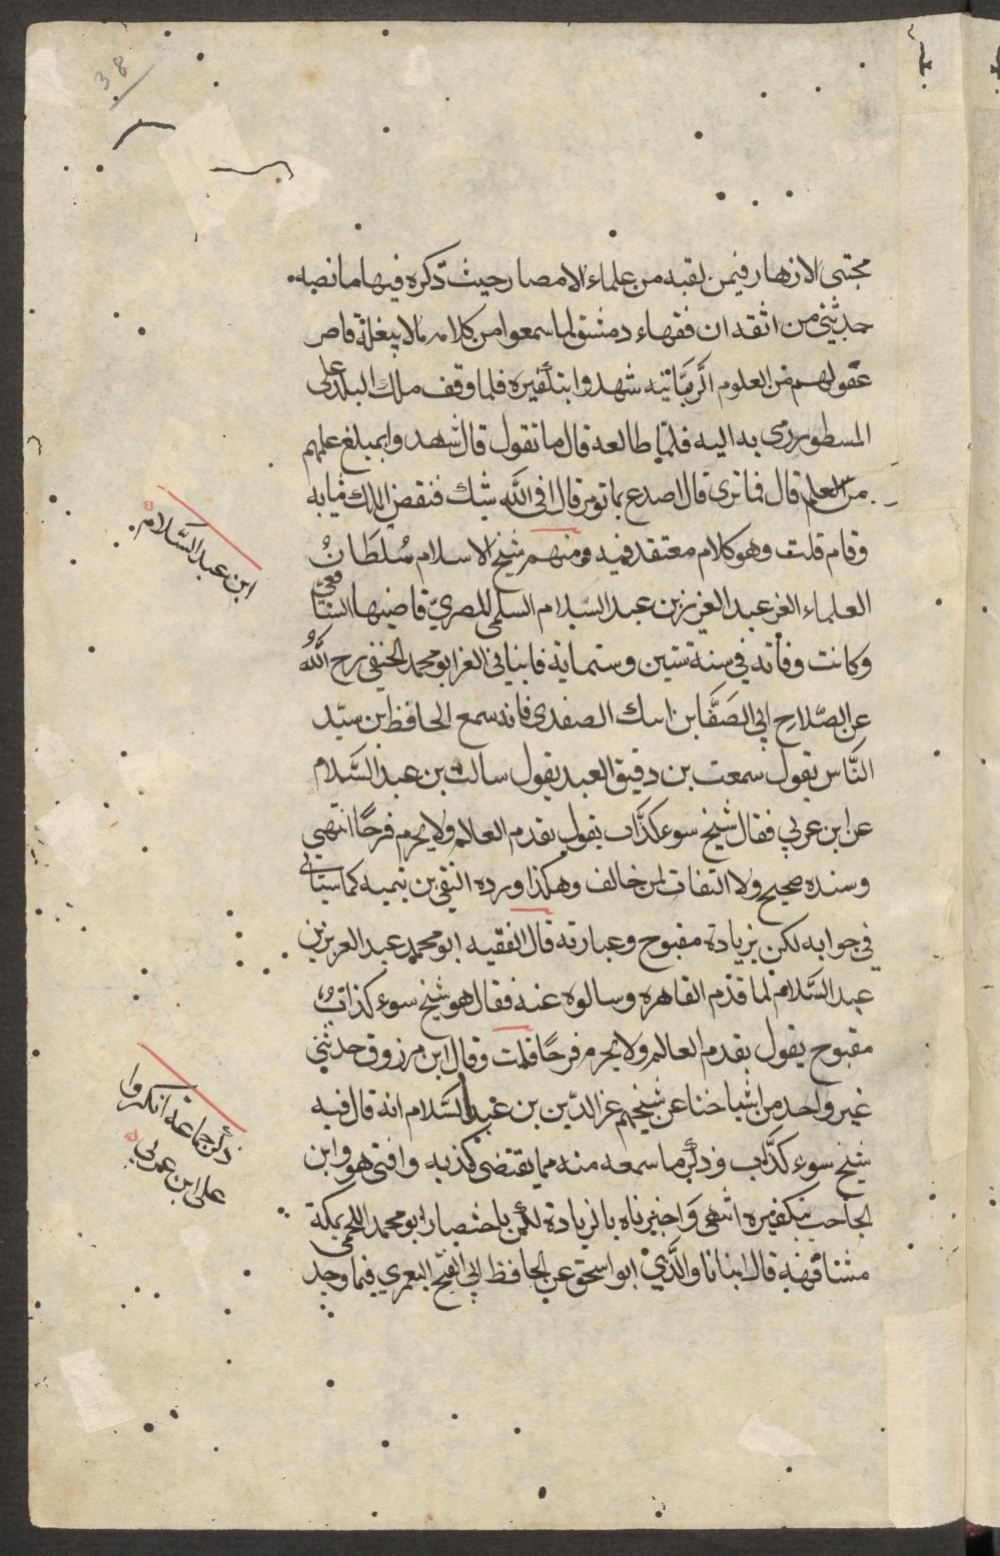 38
مجتبى الازهار فيمن لقبه من علماء الامصار حيث ذكره فيها ما نصه
حدثني من اثق به ان فقهاء دمشق لما سمعوا من كلامه مالا يبلغه قاصر
عقولهم من العلوم الربانية شهدوا بتكفيره فلما وقف ملك البلد على
المسطور رمى به اليه فلما طالعه قال ما تقول قال شهدوا بمبلغ علمهم
من العلم قال فما ترى قال اصدع بما تومر قال افي الله شك فنقض الملك ثيابه
وقام قلت وهو كلام معتقد فيه ومنهم شيخ الاسلام سلطان
العلماء العز عبد العزيز بن عبد السلام السلمي المصري قاضيها الشافعي
وكانت وفاته في سنة ستين وستماية فانباني العز ابو محمد الحنفي رح الله
عن الصلاح ابي الصفا بن ايبك الصفدي فانه سمع الحافظ ابن سيد
الناس يقول سمعت بن دقيق العيد يقول سالت بن عبد السلام
عن ابن عربي فقال شيخ سوء كذاب يقول بقدم العالم ولا يحرم فرجا انتهى
وسنده صحيح ولا التفات لمن خالف وهكذا ورده التقي بن تيميه كما سياتي
في جوابه لكن بزيادة مقبوح وعبارته قال الفقيه ابو محمد عبد العزيز بن
عبد السلام لما قدم القاهره وسالوه عنه فقال هو شيخ سوء كذاب
مقبوح يقول بقدم العالم ولا يحرم فرجا قلت وقال ابن مرزوق حدثني
غير واحد من اشياخنا عن شيخهم عز الدين بن عبد السلام انه قال فيه
شيخ سوء كذاب وذكر ما سمعه منه مما يقتضي كذبه وافتى هو وابن
الحاجب بتكفيره انتهى واخبرناه بالزيادة لكن باختصار ابو محمد اللخمي بمكة
مشافهة قال انبانا والدي ابو اسحق عن الحافظ ابي الفتح اليعمري فيما وجد
ابن عبد السلام
ذكر جماعة انكروا
على ابن عربي